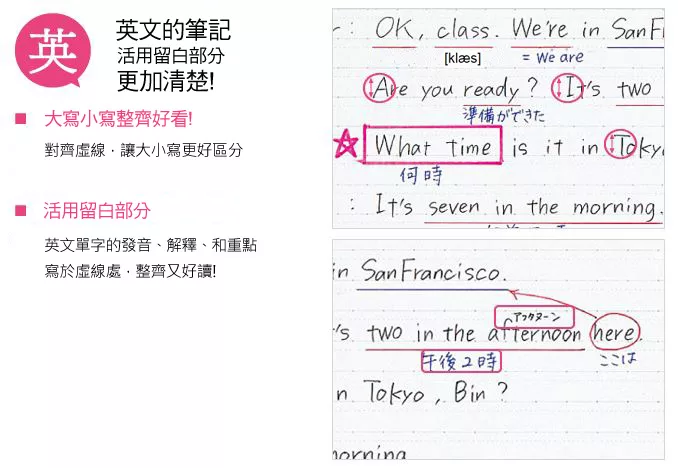 英
英文的筆記
活用留白部分
更加清楚!
大寫小寫整齊好看!
對齊虛線，讓大小寫更好區分
活用留白部分
英文單字的發音、解釋、和重點
寫於虛線處，整齊又好讀!
: OK, class. We're in San F
[klæs] = We are
Are you ready? It's two
準備ができた
What time is it in Tokyo
何時
: It's seven in the morning.
in San Francisco.
アフタヌーン
's two in the afternoon here.
午後2時 ここは
n Tokyo, Bin?
morning